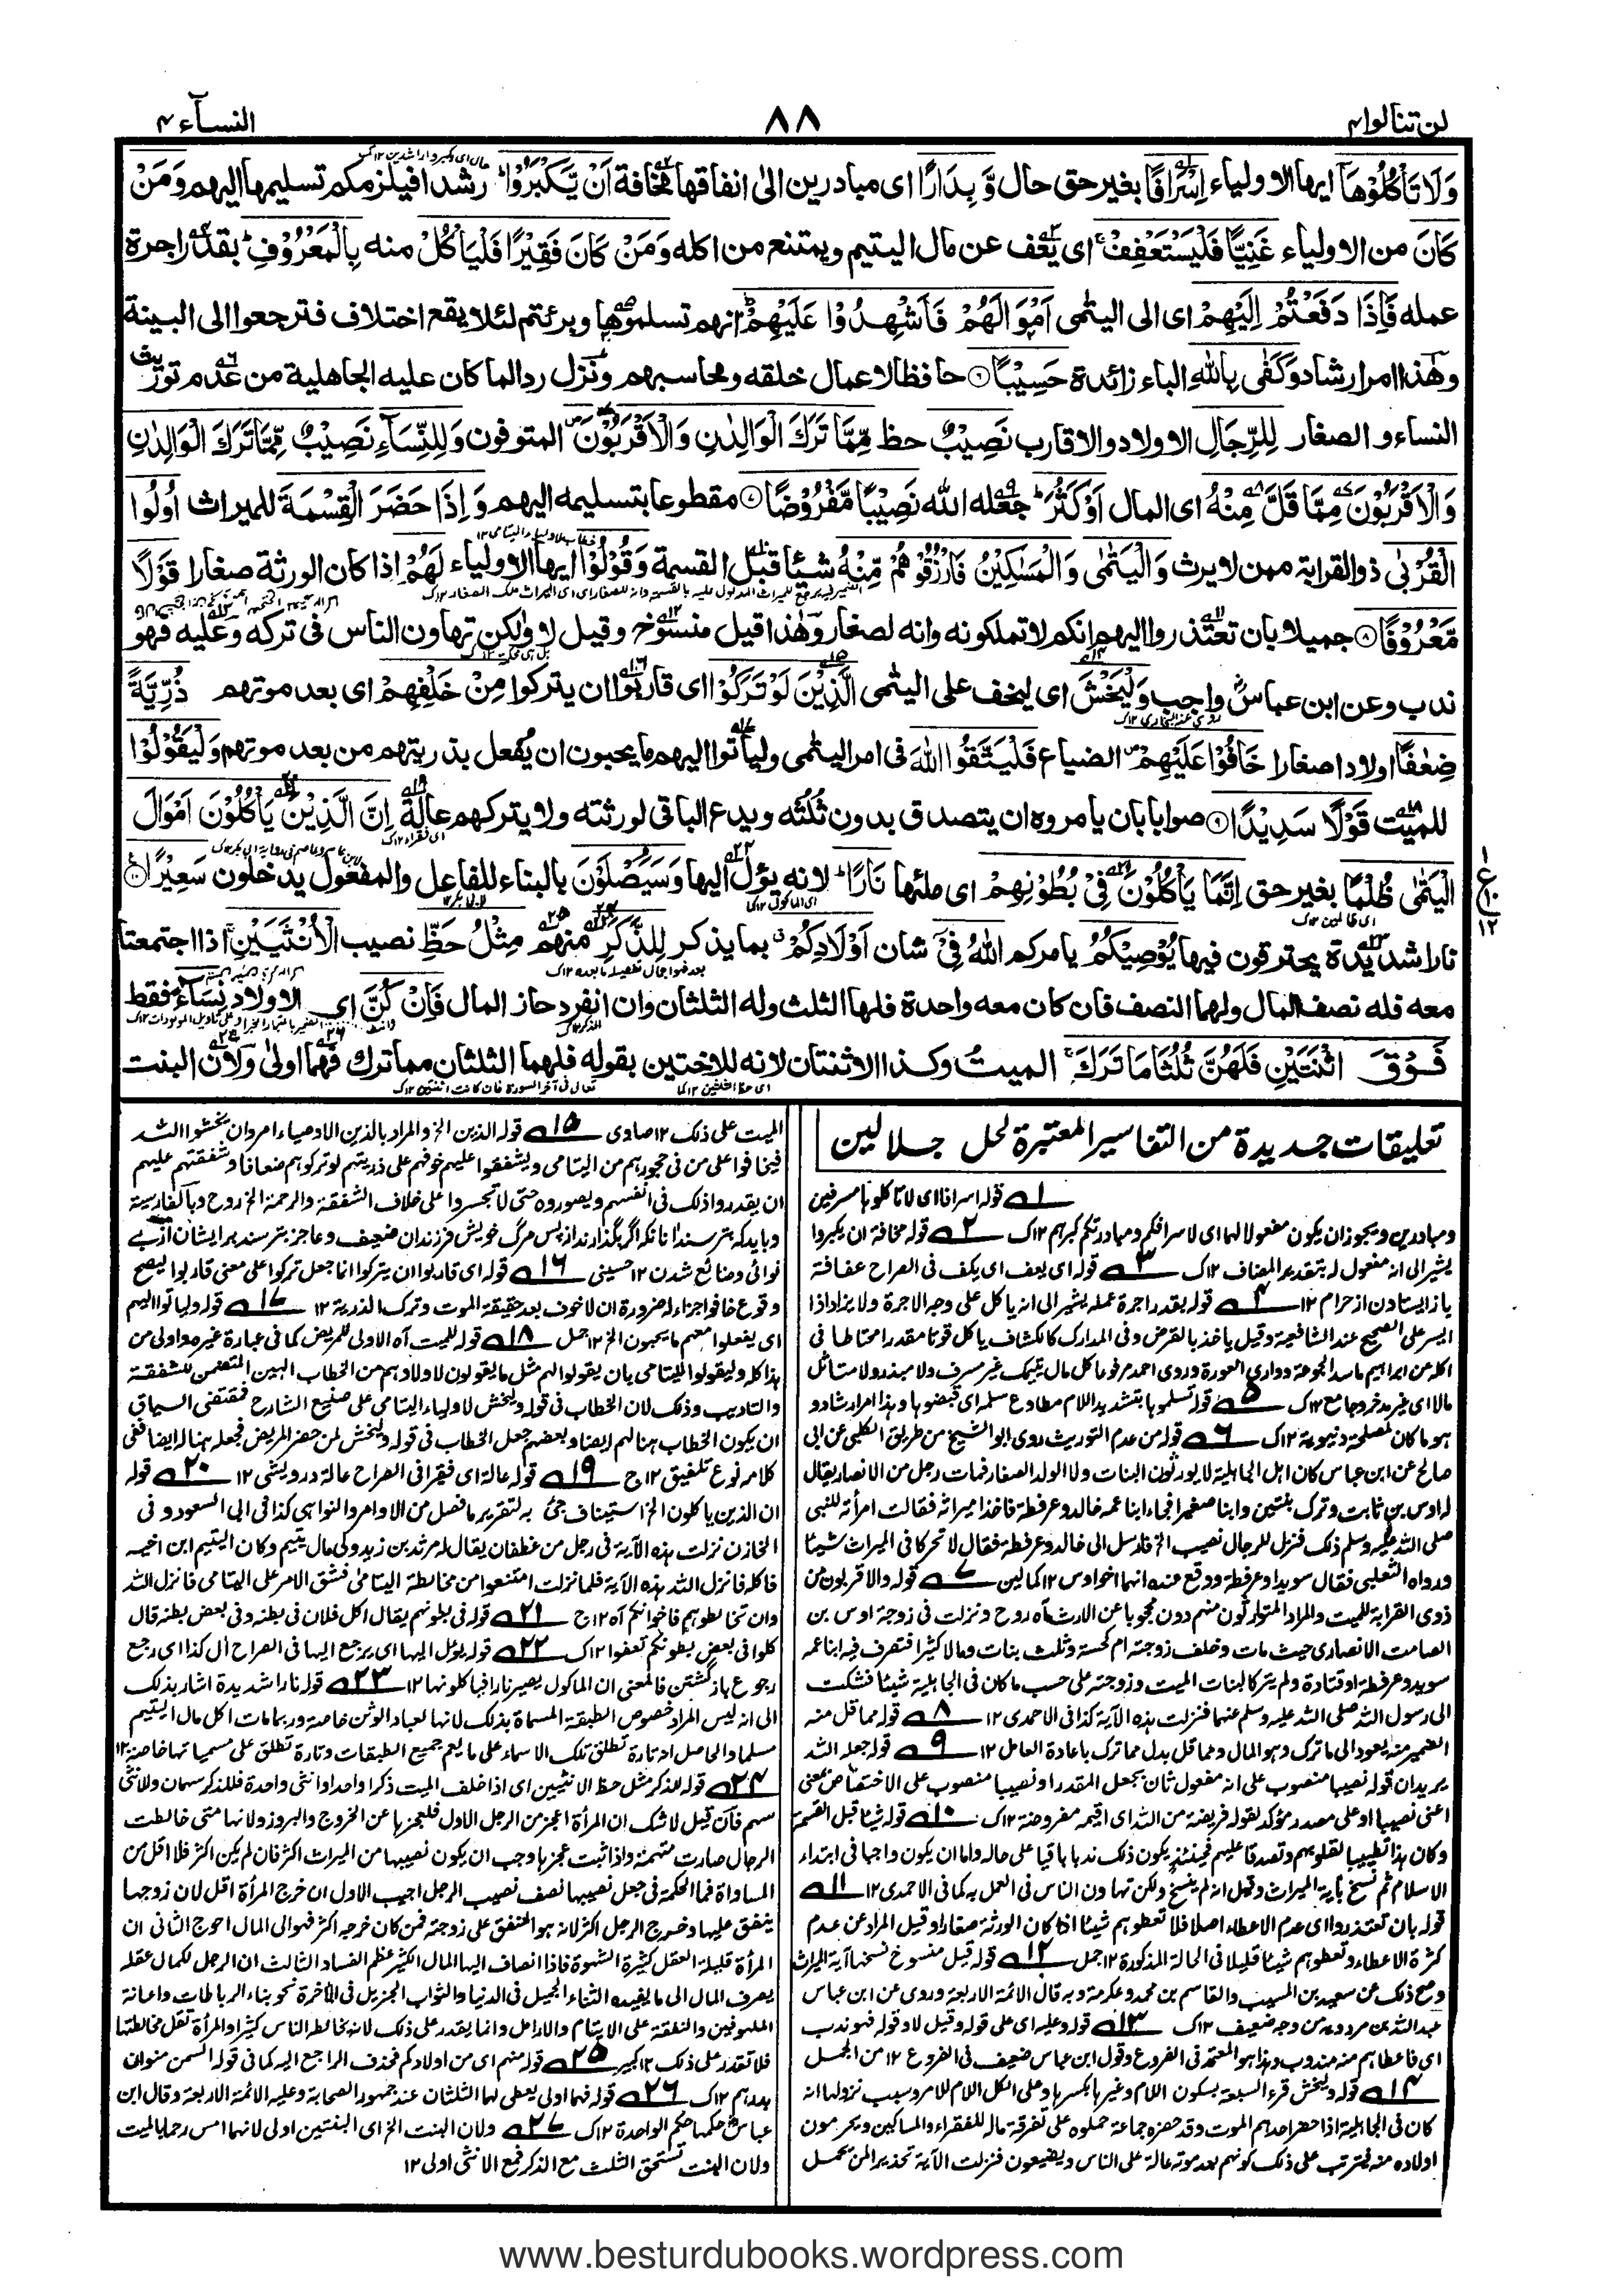 لن تنالوا ۴
۸۸
النسآء ۴
وَلَا تَأْكُلُوْهَآ ايها الاولياء اِسْرَافًا بغير حق حال وَّ بِدَارًا اى مبادرين الى انفاقها مخافة اَنْ يَّكْبَرُوْا رشدا فيلزمكم تسليمها اليهم وَمَنْ
كَانَ من الاولياء غَنِيًّا فَلْيَسْتَعْفِفْ اى يعف عن مال اليتيم ويمتنع من اكله وَمَنْ كَانَ فَقِيْرًا فَلْيَاْكُلْ منه بِالْمَعْرُوْفِ بقدر اجرة
عمله فَاِذَا دَفَعْتُمْ اِلَيْهِمْ اى الى اليتٰمى اَمْوَالَهُمْ فَاَشْهِدُوْا عَلَيْهِمْ انهم تسلموها وبرئتم لئلا يقع اختلاف فترجعوا الى البينة
وهذا امر ارشاد وَكَفٰى بِاللّٰهِ الباء زائدة حَسِيْبًا ۝۶ حافظا لاعمال خلقه ومحاسبهم ونزل ردا لما كان عليه الجاهلية من عدم توريث
النساء و الصغار لِلرِّجَالِ الاولاد والاقارب نَصِيْبٌ حظ مِّمَّا تَرَكَ الْوَالِدٰنِ وَالْاَقْرَبُوْنَ المتوفون وَلِلنِّسَآءِ نَصِيْبٌ مِّمَّا تَرَكَ الْوَالِدٰنِ
وَالْاَقْرَبُوْنَ مِمَّا قَلَّ مِنْهُ اى المال اَوْ كَثُرَ جعله الله نَصِيْبًا مَّفْرُوْضًا ۝۷ مقطوعا بتسليمه اليهم وَ اِذَا حَضَرَ الْقِسْمَةَ للميراث اُولُوا
الْقُرْبٰى ذو القرابة ممن لا يرث وَالْيَتٰمٰى وَالْمَسٰكِيْنُ فَارْزُقُوْهُمْ مِّنْهُ شيئا قبل القسمة وَقُوْلُوْا ايها الاولياء لَهُمْ اذا كان الورثة صغارا قَوْلًا
مَّعْرُوْفًا ۝۸ جميلا بان تعتذروا اليهم انكم لا تملكونه وانه لصغار وهذا قيل منسوخ وقيل لا ولكن تهاون الناس فى تركه وعليه فهو
ندب وعن ابن عباس واجب وَلْيَخْشَ اى ليخف على اليتٰمى الَّذِيْنَ لَوْ تَرَكُوْا اى قاربوا ان يتركوا مِنْ خَلْفِهِمْ اى بعد موتهم ذُرِّيَّةً
ضِعٰفًا اولادا صغارا خَافُوْا عَلَيْهِمْ الضياع فَلْيَتَّقُوا اللّٰهَ فى امر اليتٰمى ولياتوا اليهم ما يحبون ان يفعل بذريتهم من بعد موتهم وَلْيَقُوْلُوْا
للميت قَوْلًا سَدِيْدًا ۝۹ صوابا بان يامروه ان يتصدق بدون ثلثه ويدع الباقى لورثته ولا يتركهم عالة اِنَّ الَّذِيْنَ يَاْكُلُوْنَ اَمْوَالَ
الْيَتٰمٰى ظُلْمًا بغير حق اِنَّمَا يَاْكُلُوْنَ فِيْ بُطُوْنِهِمْ اى ملئها نَارًا لانه يؤل اليها وَسَيَصْلَوْنَ بالبناء للفاعل والمفعول يدخلون سَعِيْرًا ۝۱۰
نارا شديدة يحترقون فيها يُوْصِيْكُمُ يامركم اللّٰهُ فِيْ شان اَوْلَادِكُمْ بما يذكر لِلذَّكَرِ منهم مِثْلُ حَظِّ نصيب الْاُنْثَيَيْنِ اذا اجتمعتا
معه فله نصف المال ولهما النصف فان كان معه واحدة فلها الثلث وله الثلثان وان انفرد حاز المال فَاِنْ كُنَّ اى الاولاد نِسَآءً فقط
فَوْقَ اثْنَتَيْنِ فَلَهُنَّ ثُلُثَا مَا تَرَكَ الميت وكذا الاثنتان لانه للاختين بقوله فلهما الثلثان مما ترك فهما اولى ولان البنت
تعليقات جديدة من التفاسير المعتبرة لحل جلالين
۱ قوله اسرافا اى لا تاكلوها مسرفين
ومبادرين ويجوز ان يكون مفعولا لهما اى لاسرافكم ومبادرتكم كبرهم ۱۲ک ۲ قوله مخافة ان يكبروا
يشير الى انه مفعول له بتقدير المضاف ۱۲ک ۳ قوله اى يعف اى يكف فى الصراح عفافة
باز ايستادن از حرام ۱۲ ۴ قوله بقدر اجرة عمله يشير الى انه ياكل على وجه الاجرة ولا يزاد اذا
ايسر على الصحيح عند الشافعية وقيل ياخذ بالقرض وفى المدارك كالكشاف ياكل قوتا مقدرا محتاطا فى
اكله عن ابراهيم ما سد الجوعة ووارى العورة وروى احمد مرفوعا كل مال يتيمك غير مسرف ولا مبذر ولا متاثل
مالا اى غير مدخر وجامع ۱۲ک ۵ قوله تسلموها بتشديد اللام مطاوع سلم اى قبضوها وهذا امر ارشاد و
هو ما كان لمصلحة دنيوية ۱۲ک ۶ قوله من عدم التوريث روى ابو الشيخ من طريق الكلبى عن ابى
صالح عن ابن عباس كان اهل الجاهلية لا يورثون البنات ولا الولد الصغار فمات رجل من الانصار يقال
له اوس بن ثابت وترك بنتين وابنا صغيرا فجاء ابنا عمه خالد وعرفطة فاخذا ميراثه فقالت امرأته للنبى
صلى الله عليه وسلم ذلك فنزل للرجال نصيب الخ فارسل الى خالد وعرفطة فقال لا تحركا فى الميراث شيئا
ورواه الثعلبى فقال سويد وعرفطة ووقع عنده انهما اخوا اوس ۱۲ كمالين ۷ قوله والاقربون من
ذوى القرابة للميت والمراد المتوارثون منهم دون محجوبا عن الارث اه روح ونزلت فى زوجة اوس بن
الصامت الانصارى حيث مات وخلف زوجته ام كحسة وثلث بنات ومالا كثيرا فتصرف فيه ابنا عمه
سويد وعرفطة او قتادة ولم يتركا لبنات الميت وزوجته على حسب ما كان فى الجاهلية شيئا فشكت
الى رسول الله صلى الله عليه وسلم عنهما فنزلت هذه الآية كذا فى الاحمدى ۱۲ ۸ قوله مما قل منه
الضمير منه يعود الى ما ترك وهو المال ومما قل بدل مما ترك باعادة العامل ۱۲ ۹ قوله جعله الله
يريد ان قوله نصيبا منصوب على انه مفعول ثان بجعل المقدر او نصيبا منصوب على الاختصاص بمعنى
اعنى نصيبا او على مصدر مؤكد لقوله فريضة من الله اى اقيمه مفروضة ۱۲ک ۱۰ قوله شيئا قبل القسمة
وكان هذا تطييبا لقلوبهم وتصدقا عليهم فحينئذ يكون ذلك ندبا باقيا على حاله واما ان يكون واجبا فى ابتداء
الاسلام ثم نسخ باية الميراث وقيل انه لم ينسخ ولكن تهاون الناس فى العمل به كما فى الاحمدى ۱۲ ۱۱
قوله بان تعتذروا اى عدم الاعطاء اصلا فلا تعطوهم شيئا اذا كان الورثة صغارا وقيل المراد عن عدم
كثرة الاعطاء وتعطوهم شيئا قليلا فى الحالة المذكورة ۱۲ جمل ۱۲ قوله قيل منسوخ نسختها آية الميراث
وصح ذلك عن سعيد بن المسيب والقاسم بن محمد وعكرمة وبه قال الائمة الاربعة وروى عن ابن عباس
عبد الله بن مردويه من وجه ضعيف ۱۲ک ۱۳ قوله وعليه اى على قوله وقيل لا وقوله فهو ندب
اى فاعطاهم منه مندوب وهذا هو المعتمد فى الفروع وقول ابن عباس ضعيف فى الفروع ۱۲ من الجمل
۱۴ قوله وليخش قرء السبعة بسكون اللام وغيرها بكسرها وعلى الكل اللام للامر وسبب نزولها انه
كان فى الجاهلية اذا حضر احدهم الموت وقد حضره جماعة حملوه على تفرقة ماله للفقراء والمساكين ويحرمون
اولاده منه فيترتب على ذلك كونهم بعد موته عالة على الناس ويضيعون فنزلت الآية تحذيرا لمن يحمل
الميت على ذلك ۱۲ صاوى ۱۵ قوله الذين الخ والمراد بالذين الاوصياء امروا بان يخشوا الله
فيخافوا على من فى حجورهم من اليتامى ويشفقوا عليهم خوفهم على ذريتهم لو تركوهم ضعافا وشفقتهم عليهم
ان يقدروا ذلك فى انفسهم ويصوروه حتى لا تجسروا على خلاف الشفقة والرحمة الخ روح وبالفارسية
وبايد كه بترسند آنانكه اگر بگذارند از پس مرگ خويش فرزندان ضعيف وعاجز بترسند بر ايشان از بے
نوائى وضائع شدن ۱۲ حسينى ۱۶ قوله اى قاربوا ان يتركوا انما جعل تركوا على معنى قاربوا ليصح
وقوع خافوا جزاء له ضرورة ان لا خوف بعد حقيقة الموت وترك الذرية ۱۲ ۱۷ قوله ولياتوا اليهم
اى يفعلوا معهم ما يحبون الخ ۱۲ جمل ۱۸ قوله للميت آه الاولى للمريض كما فى عبارة غيره واولى من
هذا كله وليقولوا لليتامى بان يقولوا لهم مثل ما يقولون لاولادهم من الخطاب البين المتضمن للشفقة
والتاديب وذلك لان الخطاب فى قوله وليخش لاولياء اليتامى على صنيع الشارح فمقتضى السياق
ان يكون الخطاب هنا لهم ايضا وبعضهم جعل الخطاب فى قوله وليخش لمن حضر المريض فجعله هنا له ايضا ففى
كلامه نوع تلفيق ۱۲ج ۱۹ قوله عالة اى فقرا فى الصراح عالة درويشى ۱۲ ۲۰ قوله
ان الذين ياكلون الخ استيناف جئ به لتقرير ما فصل من الاوامر والنواهى كذا فى ابى السعود و فى
الخازن نزلت هذه الآية فى رجل من غطفان يقال له مرثد بن زيد ولى مال يتيم وكان اليتيم ابن اخيه
فاكله فانزل الله هذه الآية فلما نزلت امتنعوا من مخالطة اليتامى فشق الامر على اليتامى فانزل الله
وان تخالطوهم فاخوانكم آه ۱۲ج ۲۱ قوله فى بطونهم يقال اكل فلان فى بطنه وفى بعض بطنه قال
كلوا فى بعض بطونكم تعفوا ۱۲ک ۲۲ قوله يؤل اليها اى يرجع اليها فى الصراح آل كذا اى رجع
رجوع باز گشتن فالمعنى ان الماكول يصير نارا فيها كلونها ۱۲ ۲۳ قوله نارا شديدة اشار بذلك
الى انه ليس المراد خصوص الطبقة المسماة بذلك لانها لعباد الوثن خاصة وربما مات اكل مال اليتيم
مسلما والحاصل انه تارة تطلق تلك الاسماء على ما يعم جميع الطبقات وتارة تطلق على مسمياتها خاصة ۱۲
۲۴ قوله للذكر مثل حظ الانثيين اى اذا خلف الميت ذكرا واحدا وانثى واحدة فللذكر سهمان وللانثى
سهم فان قيل لا شك ان المرأة اعجز من الرجل الاول فلعجزها عن الخروج والبروز ولانها متى خالطت
الرجال صارت متهمة واذا ثبت عجزها وجب ان يكون نصيبها من الميراث اكثر فان لم يكن اكثر فلا اقل من
المساواة فما الحكمة فى جعل نصيبها نصف نصيب الرجل اجيب الاول ان خرج المرأة اقل لان زوجها
ينفق عليها وخروج الرجل اكثر لانه هو المنفق على زوجته فمن كان خرجه اكثر فهو الى المال احوج الثانى ان
المرأة قليلة العقل كثيرة الشهوة فاذا انضاف اليها المال الكثير عظم الفساد الثالث ان الرجل لكمال عقله
يصرف المال الى ما يفيده الثناء الجميل فى الدنيا والثواب الجزيل فى الآخرة نحو بناء الرباطات واعانة
الملهوفين والنفقة على الايتام والارامل وانما يقدر على ذلك لانه يخالط الناس كثيرا والمرأة تقل مخالطتها
فلا تقدر على ذلك ۱۲ كبير ۲۵ قوله منهم اى من اولادكم فحذف الراجع اليه كما فى قوله السمن منوان
بدرهم ۱۲ک ۲۶ قوله فهما اولى يعطى لهما الثلثان عند جمهور الصحابة وعليه الائمة الاربعة وقال ابن
عباس حكمها حكم الواحدة ۱۲ک ۲۷ ولان البنت الخ اى البنتين اولى لانهما امس رحما بالميت
ولان البنت تستحق الثلث مع الذكر فمع الانثى اولى ۱۲
www.besturdubooks.wordpress.com